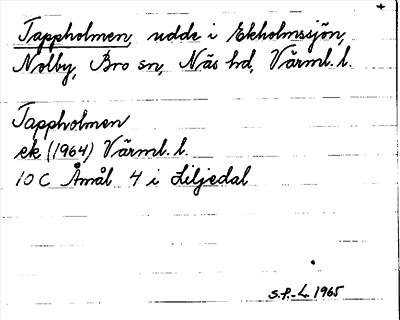 +
Tappholmen, udde i Ekholmssjön,
Nolby, Bro sn, Näs hd, Värml. l.
Tappholmen
ek (1964) Värml. l.
10 C Åmål 4 i Liljedal
S.P.-L. 1965